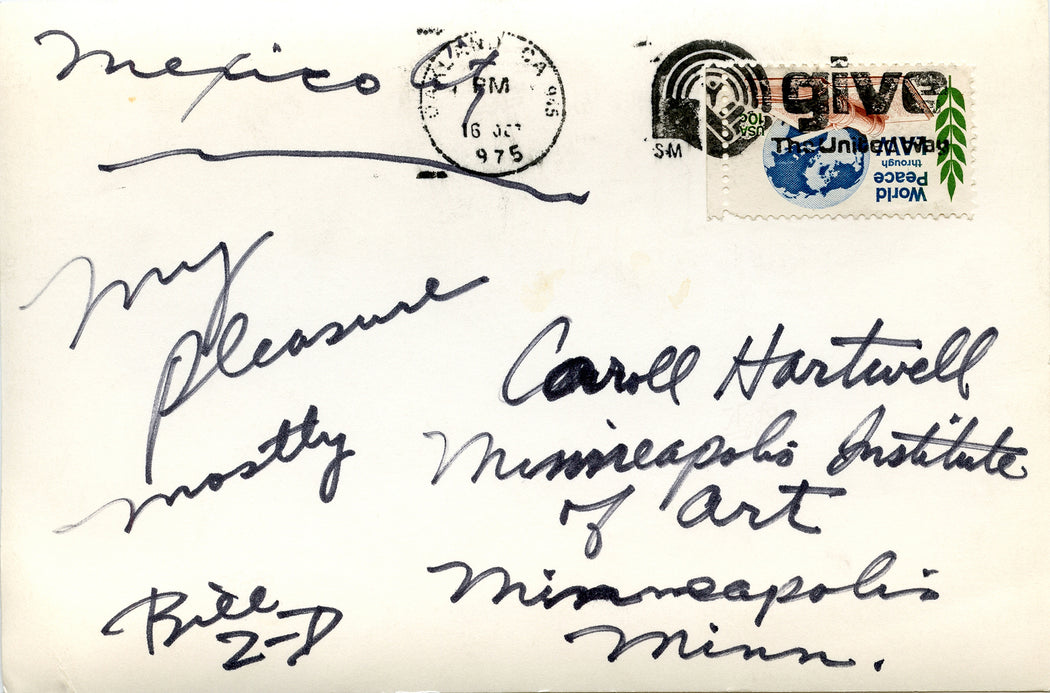 Mexico City
OAKLAND, CA
PM
16 OCT
1975
give
The United Way
USA 10c
World
Peace
through
LAW
My
pleasure
mostly
Bill
Z-D
Caroll Hartwell
Minneapolis Institute
of Art
Minneapolis
Minn.